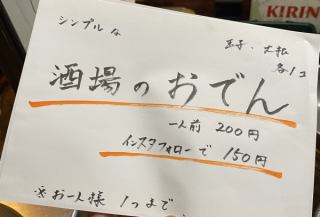 KIRIN
シンプルな
玉子・大根
各1コ
酒場のおでん
一人前 200円
インスタフォローで 150円
※お一人様 1つまで